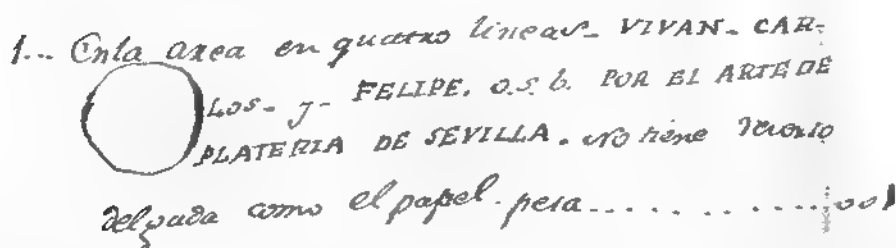 1... Enla area en quatro lineas_ VIVAN_ CAR-
LOS_ y_ FELIPE. O.S. b. POR EL ARTE DE
PLATERIA DE SEVILLA. No tiene reverso
delgada como el papel. pesa............001